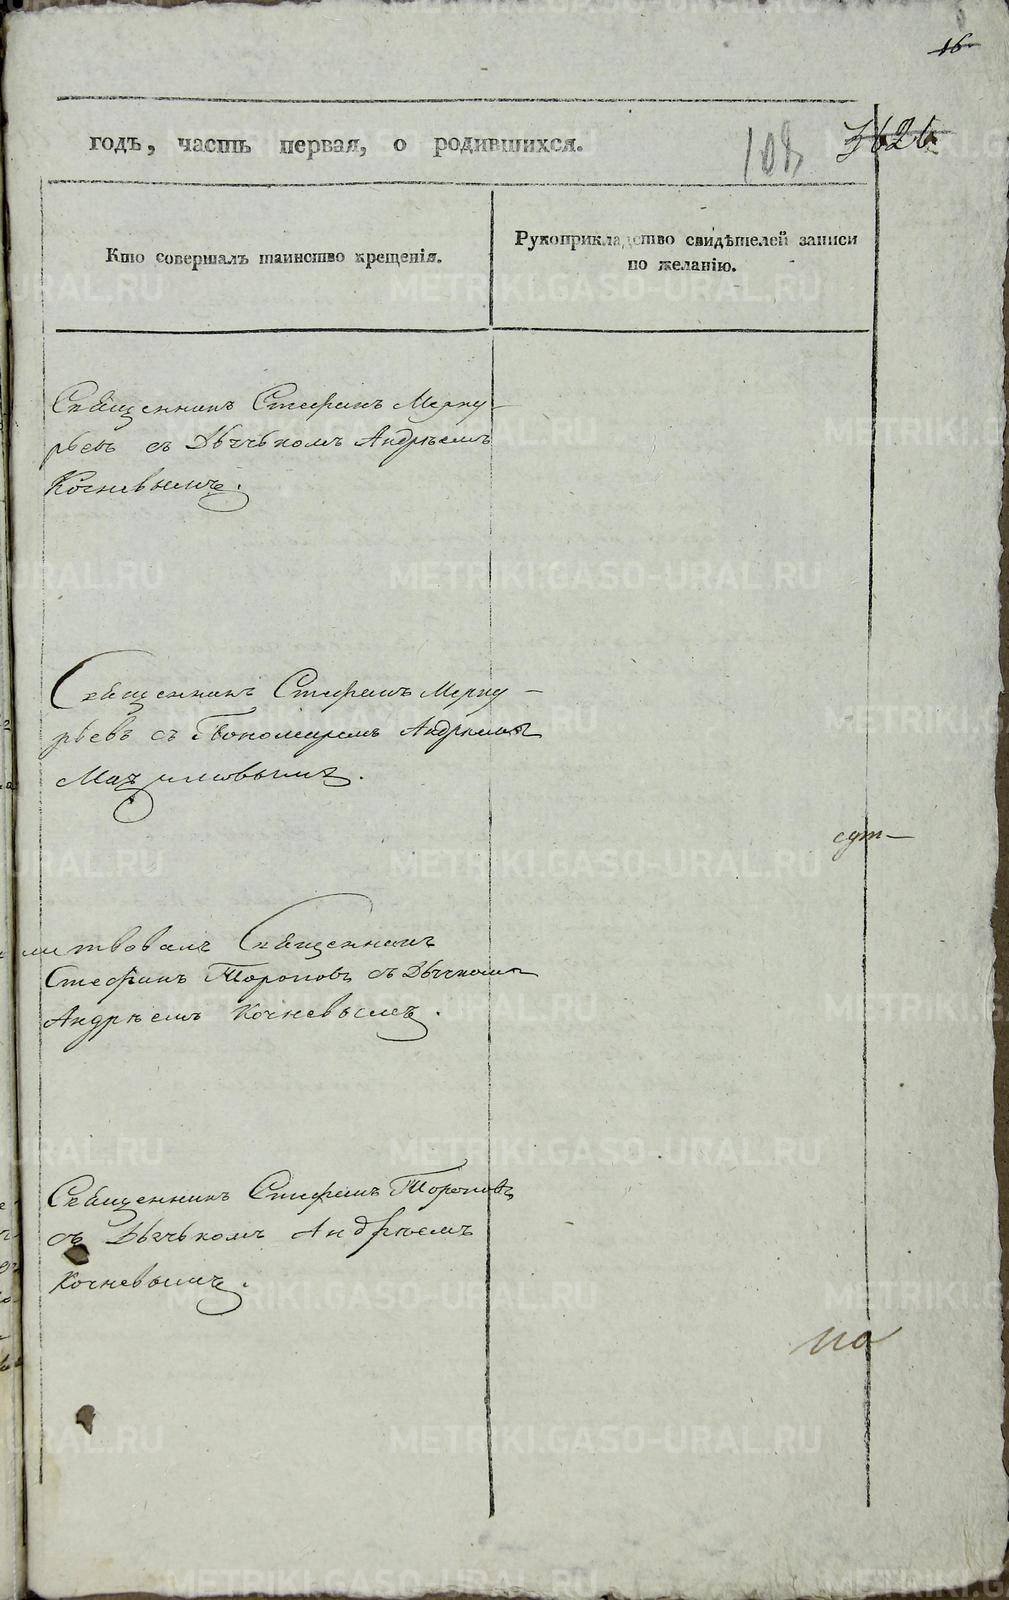 16
годъ, часть первая, о родившихся.
108
Кто совершалъ таинство крещенія.
Рукоприкладство свидѣтелей записи
по желанію.
Священникъ Стефанъ Мерку-
рьевъ съ Дьячькомъ Андрѣемъ
Кочневымъ.
Священникъ Стефанъ Мерку-
рьевъ съ Пономаремъ Андреемъ
сут-
литвовалъ Священникъ
Стефанъ Тороповъ съ Дьячкомъ
Андрѣемъ Кочневымъ.
Священникъ Стефанъ Тороповъ
съ Дьячькомъ Андрѣемъ
Кочневымъ.
по
METRIKI.GASO-URAL.RU